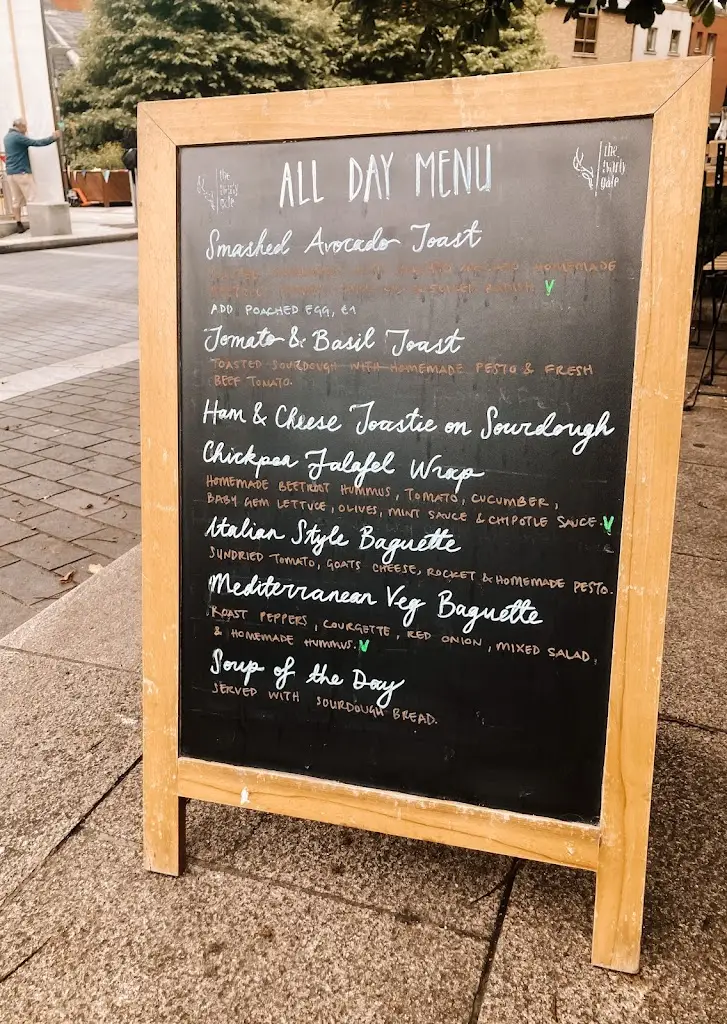 ALL DAY MENU
the
gate
Smashed Avocado Toast
HOMEMADE
V
ADD POACHED EGG, €1
Tomato & Basil Toast
TOASTED SOURDOUGH WITH HOMEMADE PESTO & FRESH
BEEF TOMATO.
Ham & Cheese Toastie on Sourdough
Chickpea Falafel Wrap
HOMEMADE BEETROOT HUMMUS, TOMATO, CUCUMBER,
BABY GEM LETTUCE, OLIVES, MINT SAUCE & CHIPOTLE SAUCE. V
Italian Style Baguette
SUNDRIED TOMATO, GOATS CHEESE, ROCKET & HOMEMADE PESTO.
Mediterranean Veg Baguette
ROAST PEPPERS, COURGETTE, RED ONION, MIXED SALAD,
& HOMEMADE HUMMUS. V
Soup of the Day
SERVED WITH SOURDOUGH BREAD.